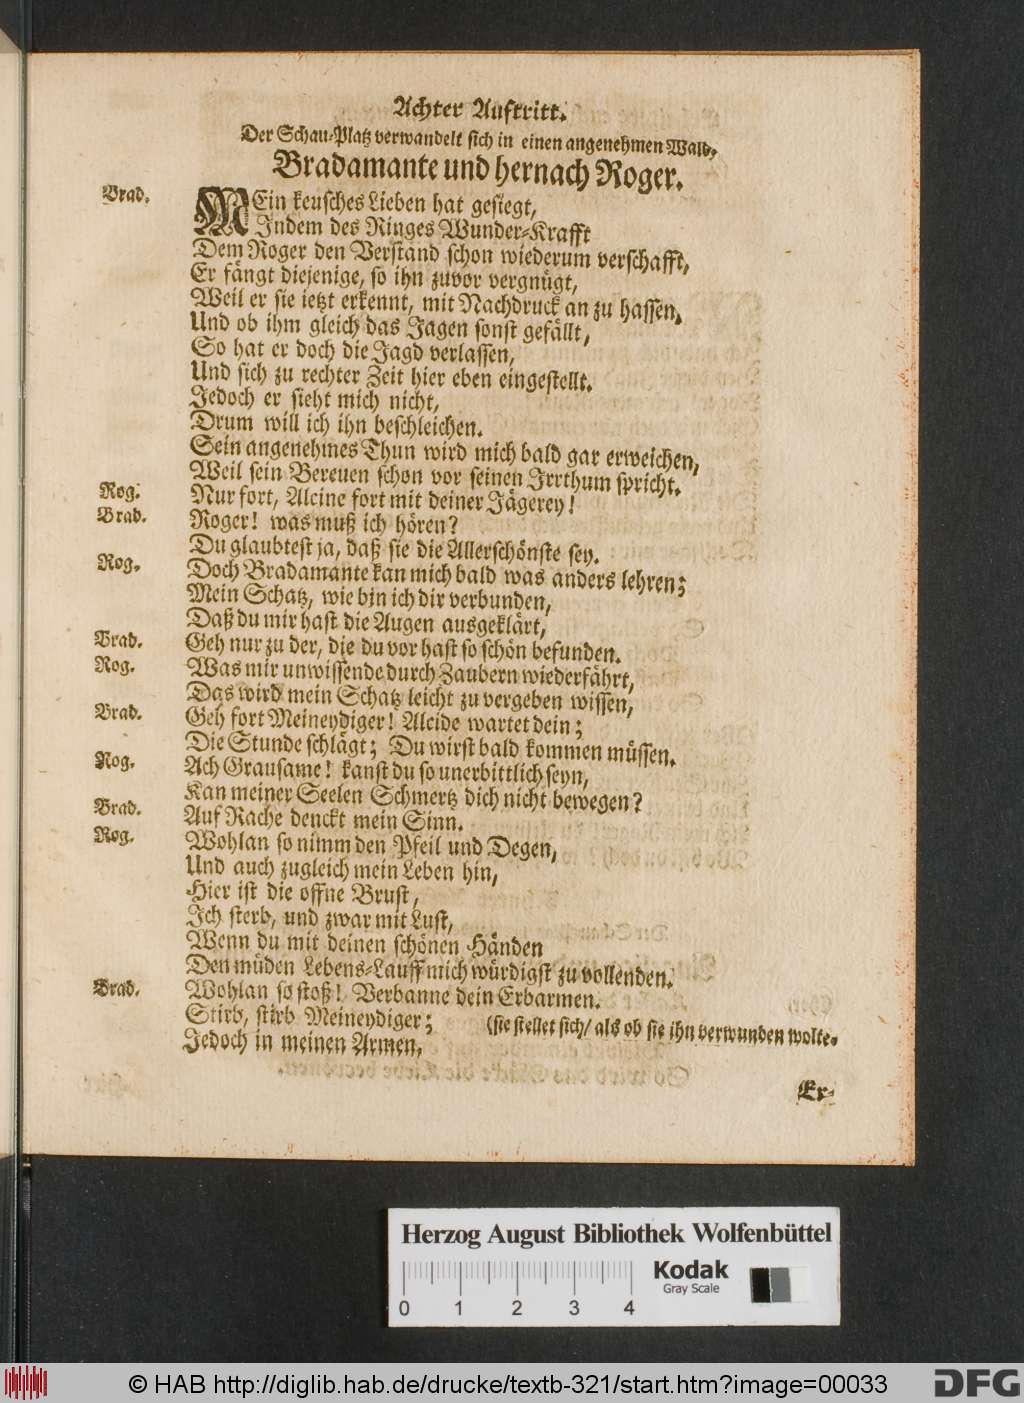 Achter Auftritt.
Der Schau-Platz verwandelt sich in einen angenehmen Wald.
Bradamante und hernach Roger.
Brad. MEin keusches Lieben hat gesiegt,
Indem des Ringes Wunder-Krafft
Dem Roger den Verstand schon wiederum verschafft,
Er fängt diejenige, so ihn zuvor vergnügt,
Weil er sie ietzt erkennt, mit Nachdruck an zu hassen.
Und ob ihm gleich das Jagen sonst gefällt,
So hat er doch die Jagd verlassen,
Und sich zu rechter Zeit hier eben eingestellt.
Jedoch er sieht mich nicht,
Drum will ich ihn beschleichen.
Sein angenehmes Thun wird mich bald gar erweichen,
Weil sein Bereuen schon vor seinen Irrthum spricht.
Rog. Nur fort, Alcine fort mit deiner Jägerey!
Brad. Roger! was muß ich hören?
Du glaubtest ja, daß sie die Allerschönste sey.
Rog. Doch Bradamante kan mich bald was anders lehren;
Mein Schatz, wie bin ich dir verbunden,
Daß du mir hast die Augen ausgeklärt,
Brad. Geh nur zu der, die du vor hast so schön befunden.
Rog. Was mir unwissende durch Zaubern wiederfährt,
Das wird mein Schatz leicht zu vergeben wissen,
Brad. Geh fort Meineydiger! Alcide wartet dein;
Die Stunde schlägt; Du wirst bald kommen müssen.
Rog. Ach Grausame! kanst du so unerbittlich seyn,
Kan meiner Seelen Schmertz dich nicht bewegen?
Brad. Auf Rache denckt mein Sinn.
Rog. Wohlan so nimm den Pfeil und Degen,
Und auch zugleich mein Leben hin,
Hier ist die offne Brust,
Ich sterb, und zwar mit Lust,
Wenn du mit deinen schönen Händen
Den müden Lebens-Lauff mich würdigst zu vollenden.
Brad. Wohlan so stoß! Verbanne dein Erbarmen.
Stirb, stirb Meineydiger; (sie stellet sich/ als ob sie ihn verwunden wolte.
Jedoch in meinen Armen,
Er-
Herzog August Bibliothek Wolfenbüttel
Kodak
Gray Scale
0 1 2 3 4
© HAB http://diglib.hab.de/drucke/textb-321/start.htm?image=00033
DFG